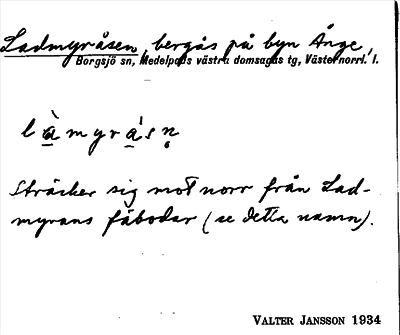 Ladmyråsen, bergås på byn Ånge,
Borgsjö sn, Medelpads västra domsagas tg, Västernorrl. l.
làmyrásn̥
Sträcker sig mot norr från Lad-
myrans fäbodar (se detta namn).
VALTER JANSSON 1934